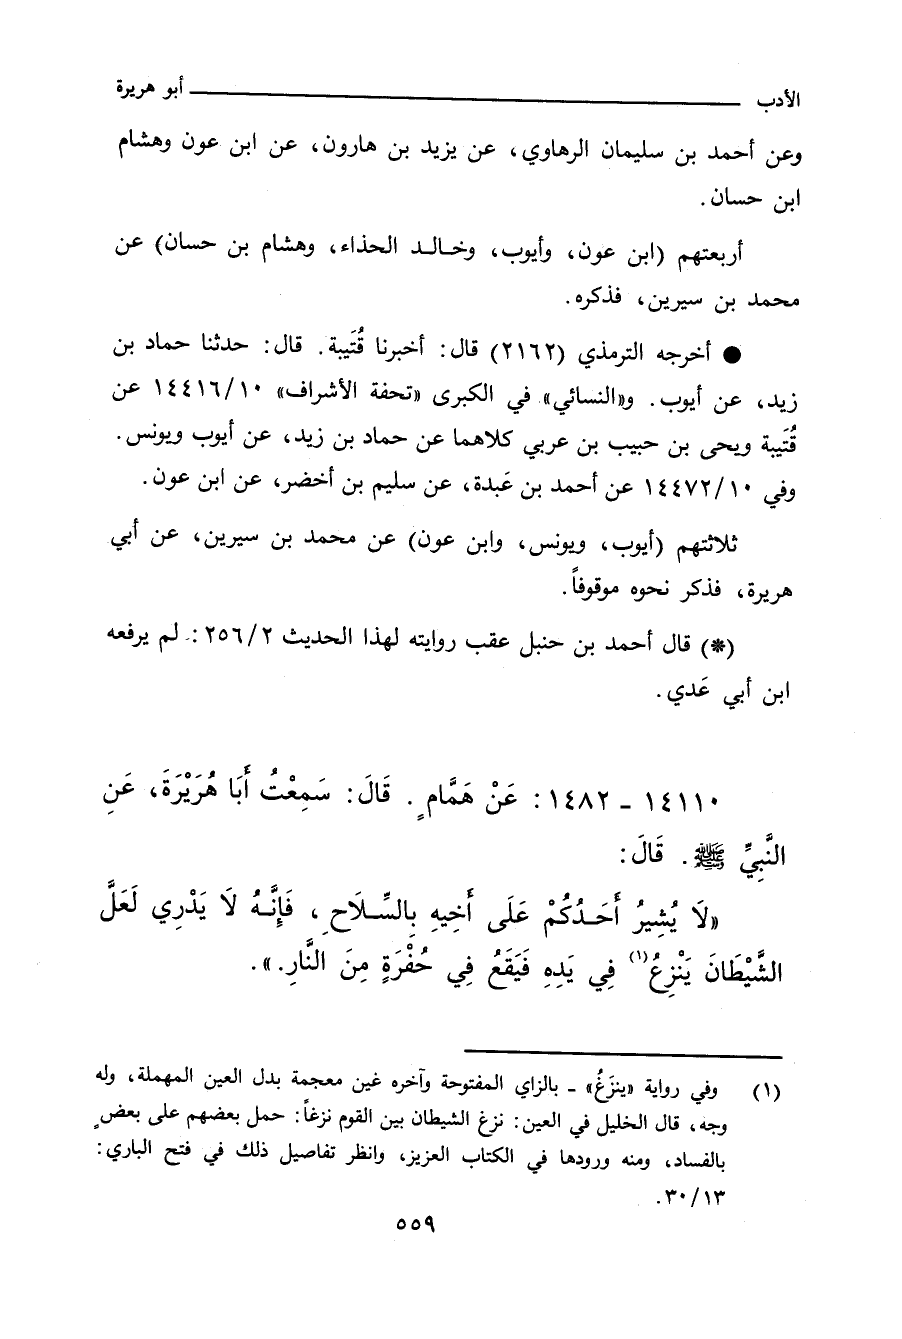 الأدب ــــــــــ أبو هريرة
وعن أحمد بن سليمان الرهاوي، عن يزيد بن هارون، عن ابن عون وهشام
ابن حسان.
أربعتهم (ابن عون، وأيوب، وخالد الحذاء، وهشام بن حسان) عن
محمد بن سيرين، فذكره.
● أخرجه الترمذي (٢١٦٢) قال: أخبرنا قُتَيبة. قال: حدثنا حماد بن
زيد، عن أيوب. و«النسائي» في الكبرى «تحفة الأشراف» ١٤٤١٦/١٠ عن
قُتَيبة ويحى بن حبيب بن عربي كلاهما عن حماد بن زيد، عن أيوب ويونس.
وفي ١٤٤٧٢/١٠ عن أحمد بن عَبدة، عن سليم بن أخضر، عن ابن عون.
ثلاثتهم (أيوب، ويونس، وابن عون) عن محمد بن سيرين، عن أبي
هريرة، فذكر نحوه موقوفاً.
(*) قال أحمد بن حنبل عقب روايته لهذا الحديث ٢٥٦/٢: لم يرفعه
ابن أبي عَدي.
١٤١١٠ - ١٤٨٢: عَنْ هَمَّامٍ. قَالَ: سَمِعْتُ أَبَا هُرَيْرَةَ، عَنِ
النَّبِيِّ ﷺ. قَالَ:
«لَا يُشِيرُ أَحَدُكُمْ عَلَى أَخِيهِ بِالسِّلَاحِ، فَإِنَّهُ لَا يَدْرِي لَعَلَّ
الشَّيْطَانَ يَنْزِعُ(١) فِي يَدِهِ فَيَقَعُ فِي حُفْرَةٍ مِنَ النَّارِ.».
(١) وفي رواية «ينزَغُ» - بالزاي المفتوحة وآخره غين معجمة بدل العين المهملة، وله
وجه، قال الخليل في العين: نزغ الشيطان بين القوم نزغاً: حمل بعضهم على بعضٍ
بالفساد، ومنه ورودها في الكتاب العزيز، وانظر تفاصيل ذلك في فتح الباري:
٣٠/١٣.
٥٥٩